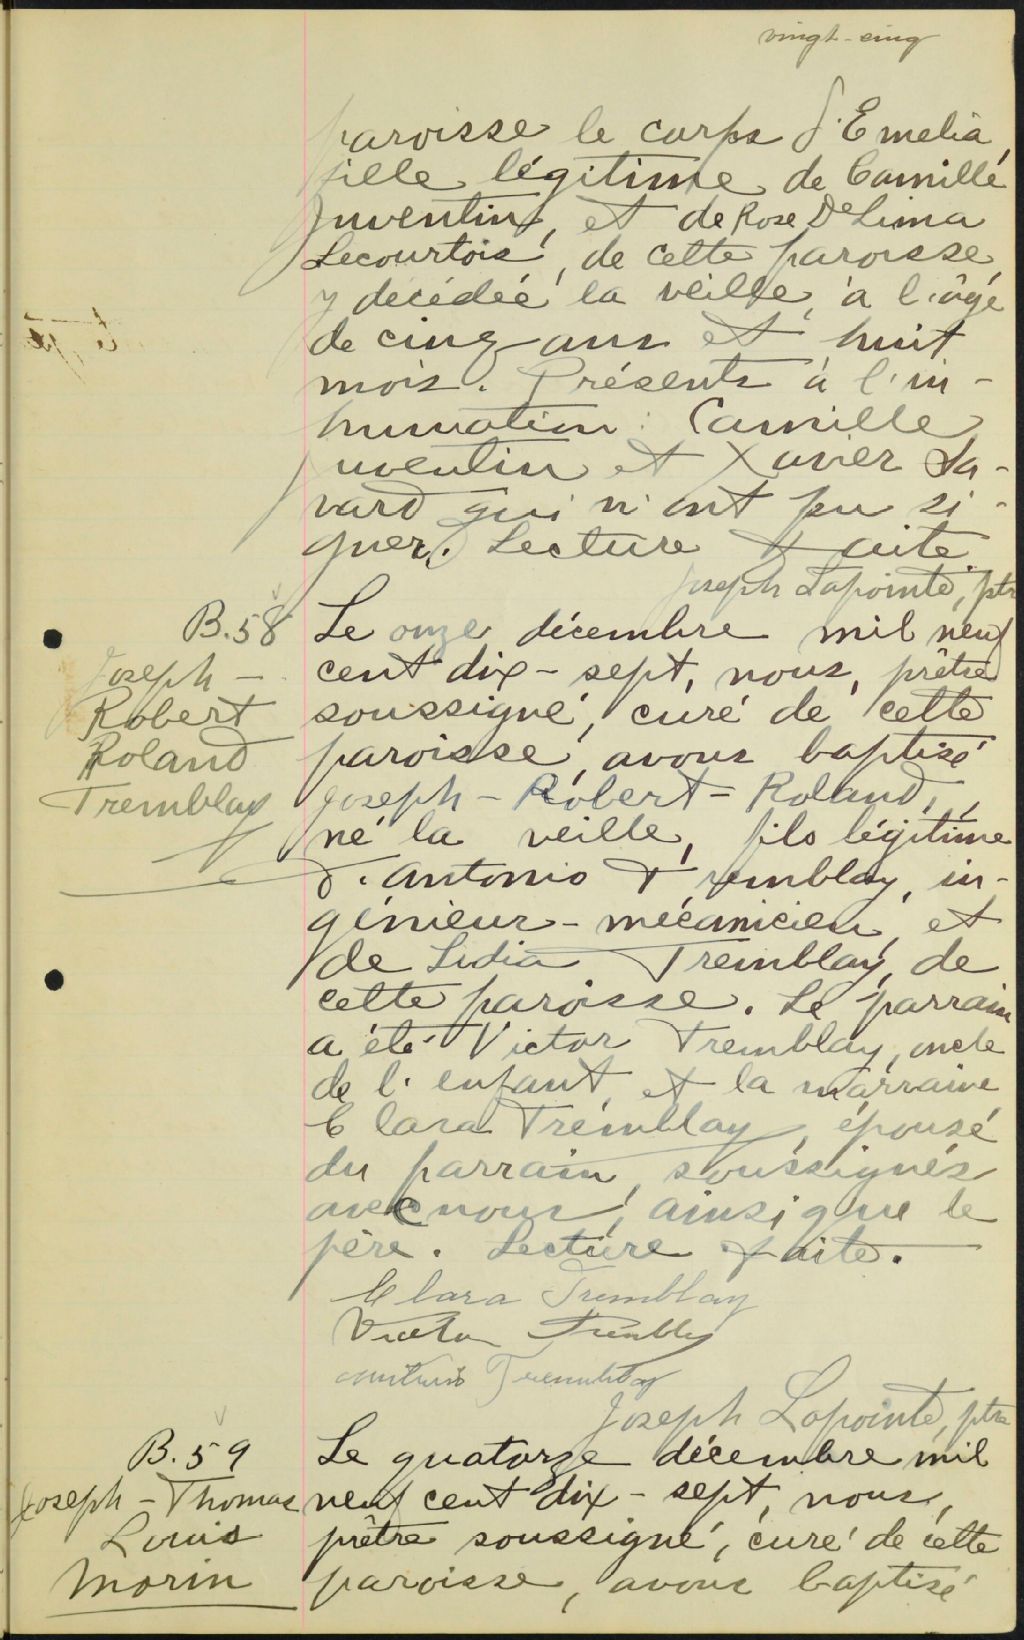 vingt-cinq
paroisse le corps d'Emelia,
fille légitime de Camille
Juventin, et de Rose De Lima
Lecourtois, de cette paroisse
y décédée la veille, à l'âge
de cinq ans et huit
mois. Présents à l'in-
humation: Camille
Juventin et Xavier Sa-
vard qui n'ont pu si-
gner. Lecture faite
Joseph Lapointe, ptre
B.58
Joseph-
Robert
Roland
Tremblay
Le onze décembre mil neuf
cent dix-sept, nous, prêtre
soussigné, curé de cette
paroisse, avons baptisé
Joseph-Robert-Roland,
né la veille, fils légitime
d'Antonio Tremblay, in-
génieur-mécanicien, et
de Lidia Tremblay, de
cette paroisse. Le parrain
a été Victor Tremblay, oncle
de l'enfant, et la marraine
Clara Tremblay, épouse
du parrain, soussignés
avec nous, ainsi que le
père. Lecture faite.
Clara Tremblay
Victor Trembly
Antonio Tremblay
Joseph Lapointe, ptre
B.59
Joseph-Thomas
Louis
Morin
Le quatorze décembre mil
neuf cent dix-sept, nous,
prêtre soussigné, curé de cette
paroisse, avons baptisé